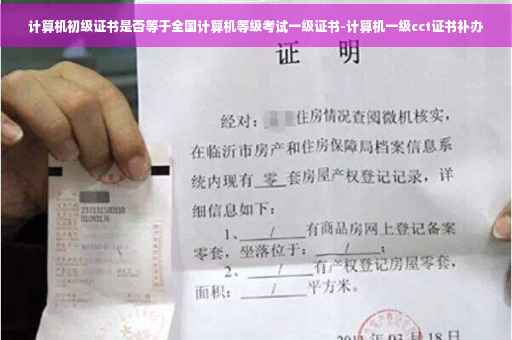 计算机初级证书是否等于全国计算机等级考试一级证书-计算机一级cct证书补办
证 明
经对：住房情况查阅微机核实，
在临沂市房产和住房保障局档案信息系
统内现有 零 套房屋产权登记记录，详
细信息如下：
1、 / 有商品房网上登记备案
零套，坐落位于： / ；
2、 / 有产权登记房屋零套，
面积： / 平方米。
03月18日